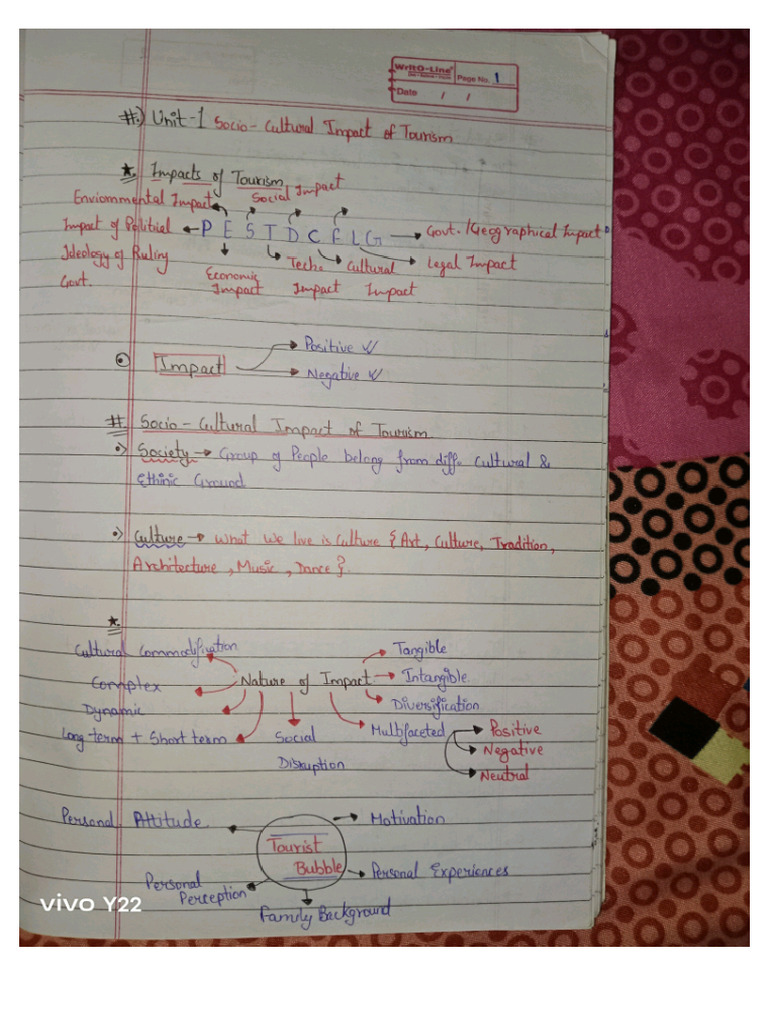 WritO-Line
Page No. 1
Date / /
#.) Unit-1 Socio-Cultural Impact of Tourism
* Impacts of Tourism
Enviornmental Impact Social Impact
Impact of Political P E S T D C E L G Govt./Geographical Impact
Ideology of Ruling Techo Cultural Legal Impact
Govt. Economic Impact Impact
Impact
Impact Positive
Negative
#. Socio-Cultural Impact of Tourism
Society → Group of People belong from diffe Cultural &
Ethinic Ground
Culture → What we live is Culture { Art, Culture, Tradition,
Architecture, Music, Dance }.
*
Cultural Commodification Tangible
Complex Nature of Impact Intangible
Dynamic Diversification
Long term + Short term Social Multifaceted Positive
Disruption Negative
Neutral
Personal Attitude Motivation
Tourist
Bubble Personal Experiences
Personal
Perception
Family Background
vivo Y22